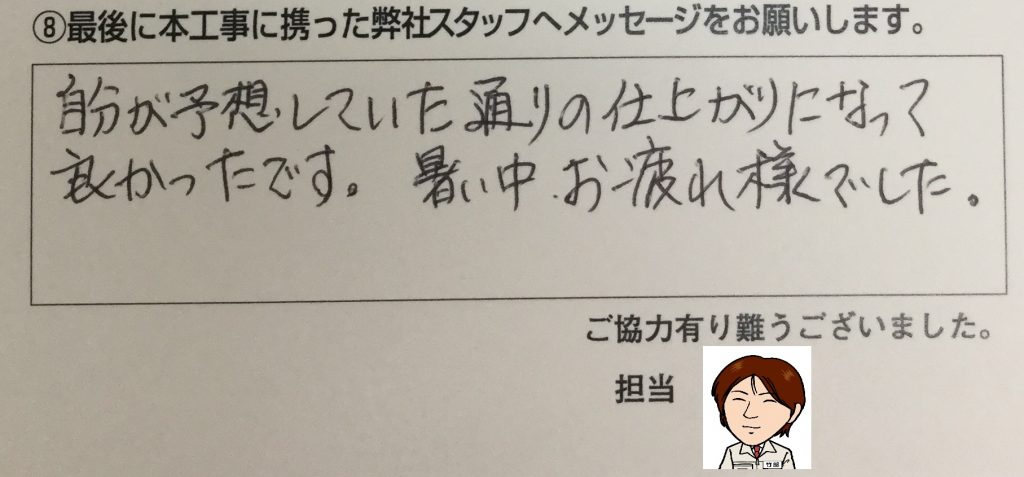 ⑧最後に本工事に携った弊社スタッフへメッセージをお願いします。
自分が予想していた通りの仕上がりになって
良かったです。 暑い中お疲れ様でした。
ご協力有り難うございました。
担当